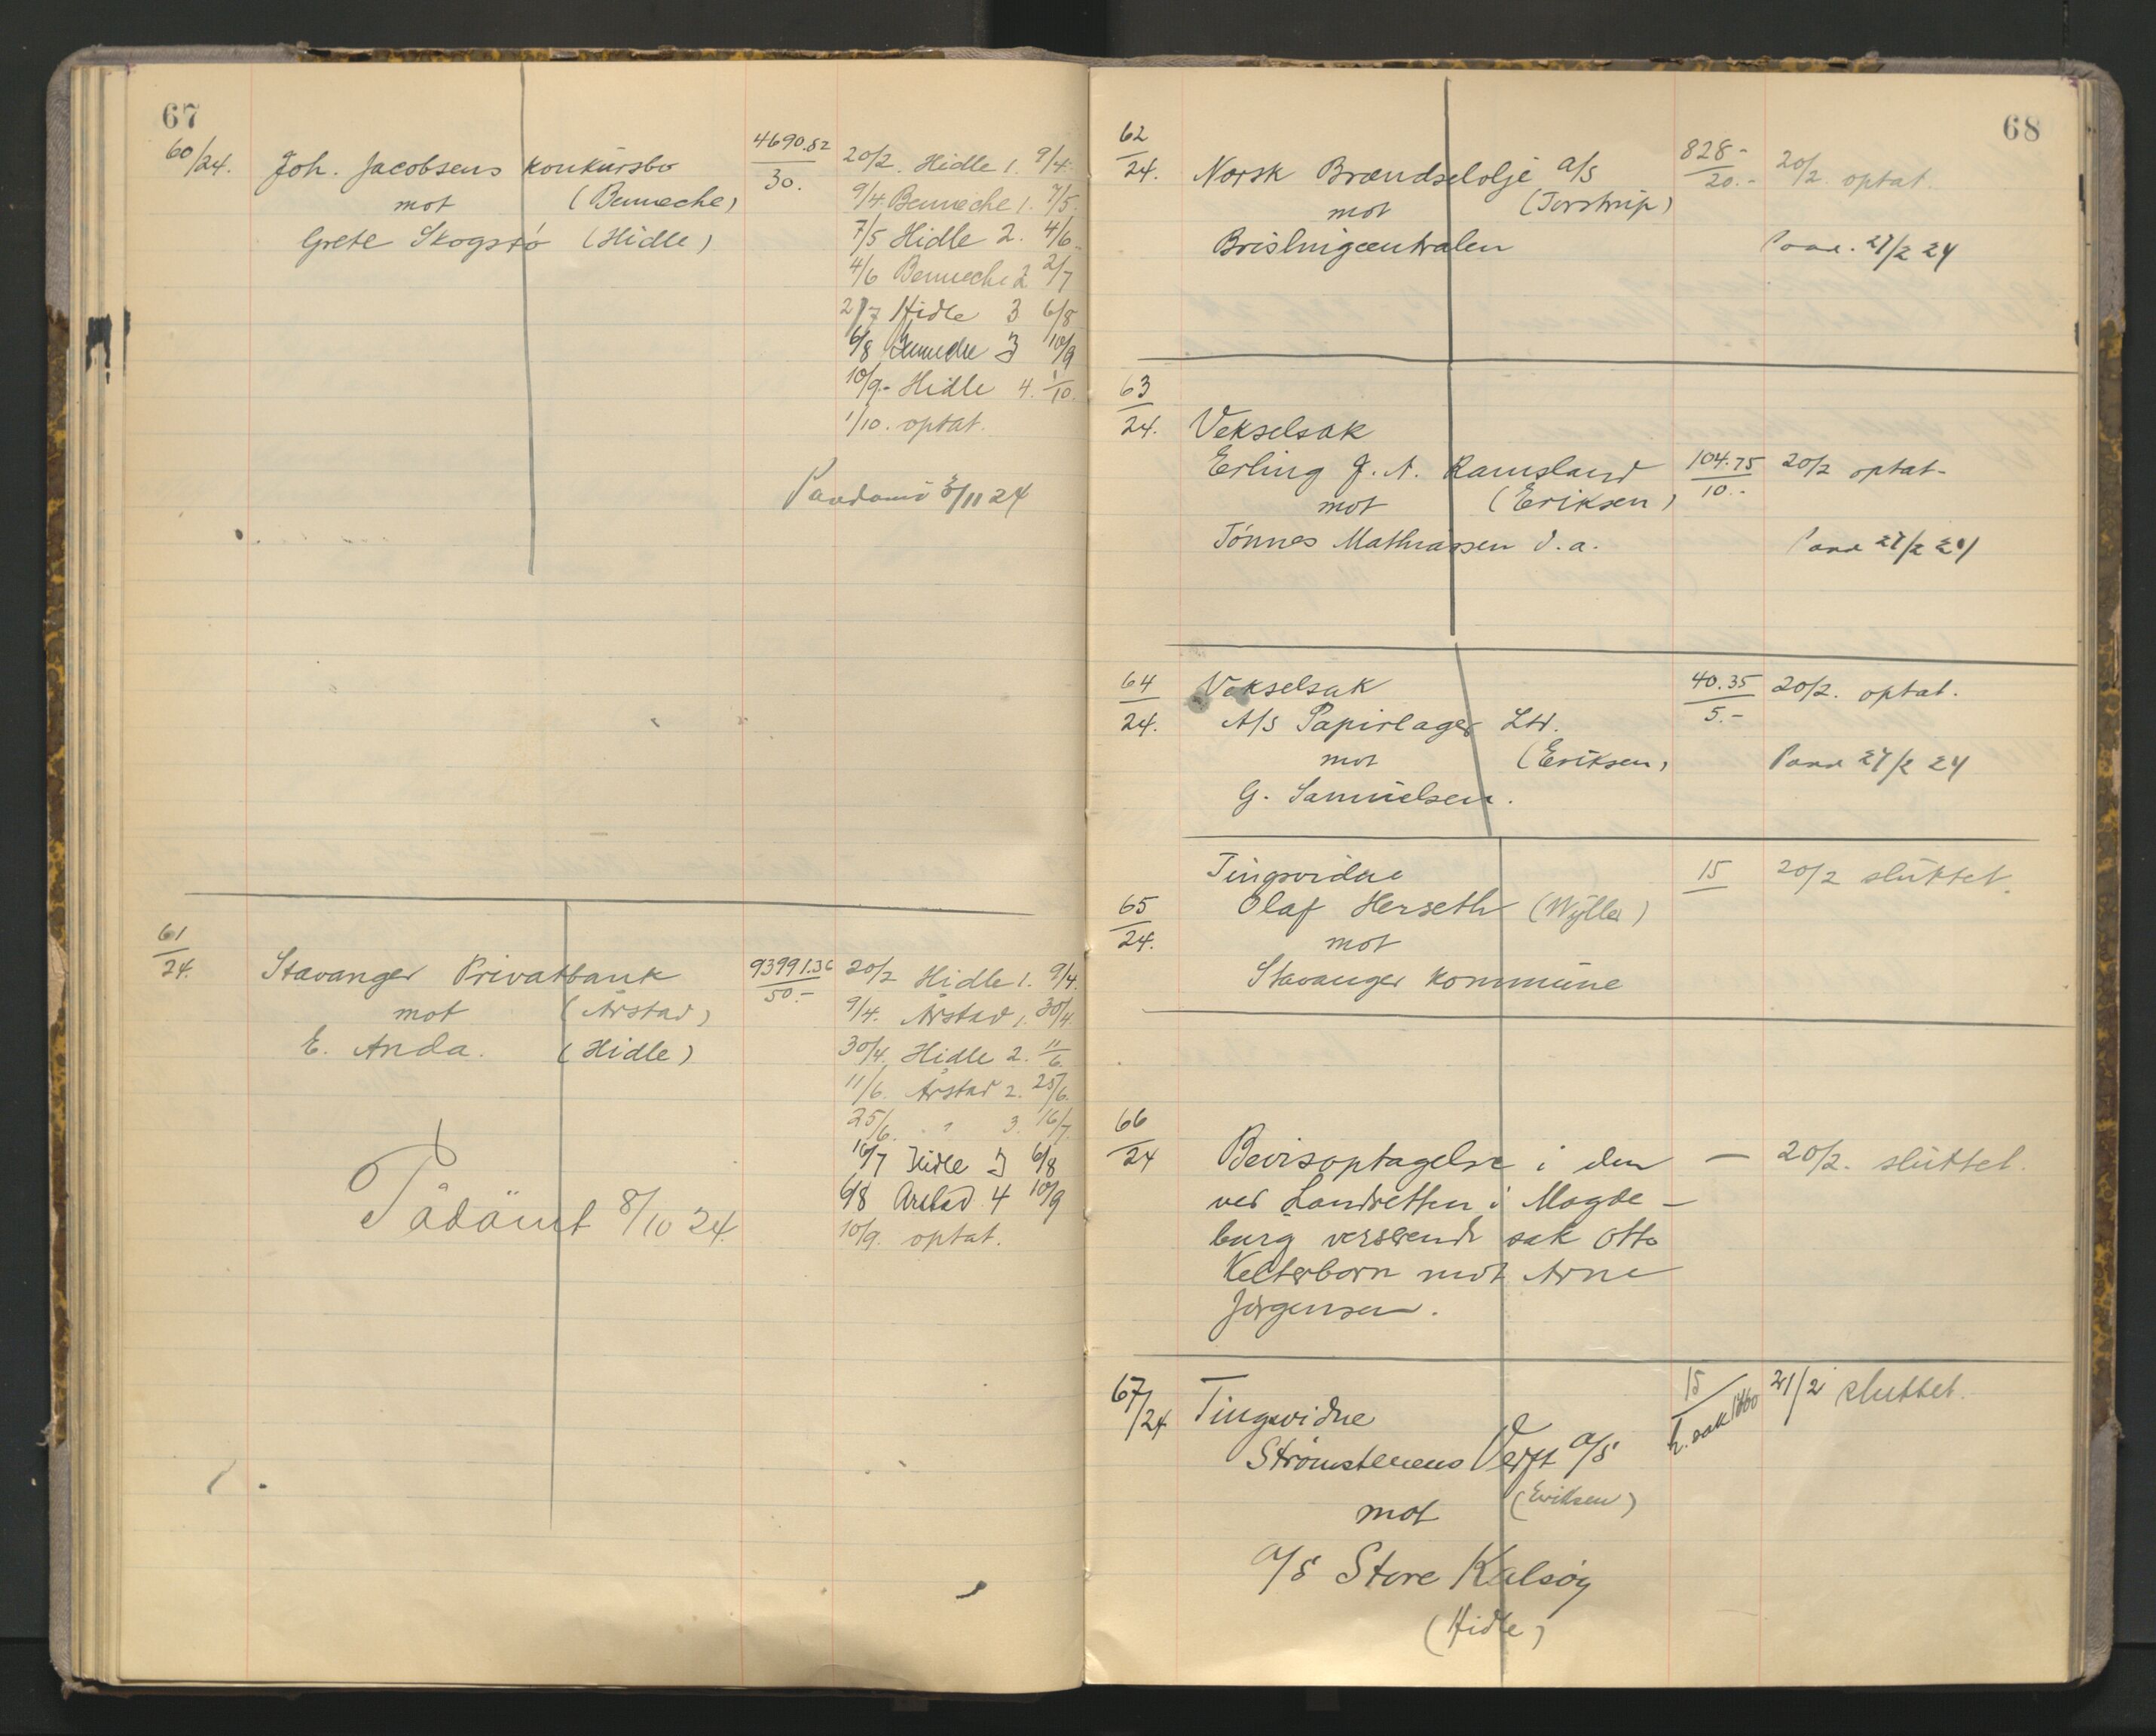 67
60/24. Joh. Jacobsens konkursbo 4690.82 20/2. Hidle 1. 9/4.
mot (Benneche) 30. 9/4 Benneche 1. 7/5.
Grete Skogstö (Hidle) 7/5 Hidle 2. 4/6.
4/6 Benneche 2 2/7
2/7 Hidle 3 6/8
6/8 Benneche 3 10/9
10/9.- Hidle 4. 1/10.
1/10. optat.
11 24
61/24. Stavanger Privatbank 93991.36 20/2 Hidle 1. 9/4.
mot (Årstad) 50.- 9/4. Årstad 1. 30/4.
E. Anda. (Hidle) 30/4. Hidle 2. 11/6.
11/6. Årstad 2. 25/6.
25/6. " 3. 16/7.
16/7 Hidle 3 6/8
6/8 Årstad 4 10/9
Pådömt 8/10 24. 10/9. optat.
68
62/24. Norsk Brændselolje A/S 828- 20/2. optat.
mot 20.-
Brislingcentralen 27/2 24
63/24. Vekselsak
Erling J. A. Ramsland 104.75 20/2 optat-
mot (Eriksen) 10.-
Tönnes Mathiassen d. a. 27/2 24
64/24. Vekselsak 40.35 20/2. optat.
A/S Papirlager Ltd. 5.-
mot (Eriksen) 27/2 24
G. Samuelsen.
Tingsvidne 15 20/2 sluttet.
65/24. Olaf Herseth (Wyller)
mot
Stavanger kommune
66/24 Bevisoptagelse i den — 20/2. sluttet.
ved Landretten i Magde-
burg verserende sak Otto
Kelterborn mot Arne
Jørgensen.
67/24 Tingsvidne 15 21/2 sluttet.
Strømstenens Verft A/S
(Eriksen)
mot
A/S Store Kalsöy
(Hidle)